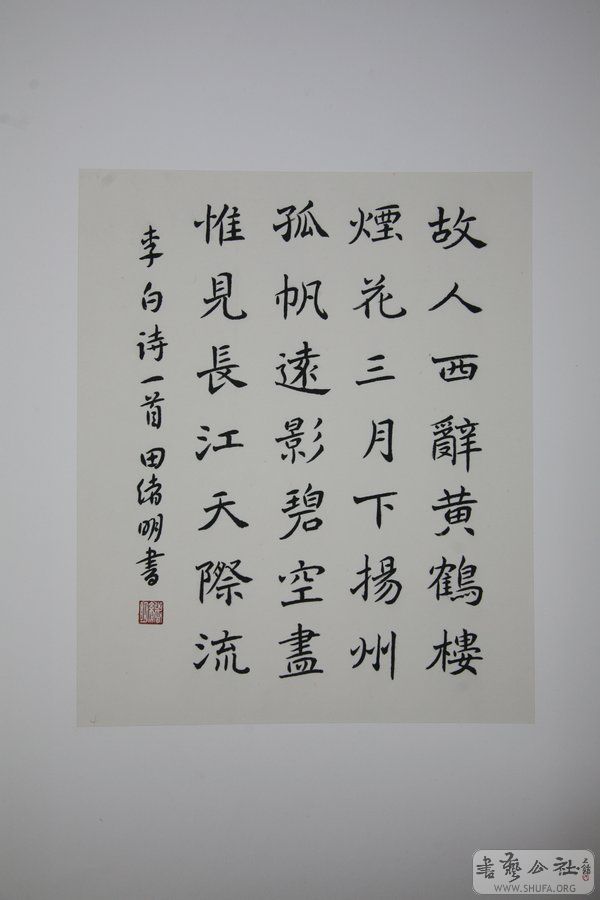 故人西辭黄鶴樓
煙花三月下揚州
孤帆遠影碧空盡
惟見長江天際流
李白诗一首 田绪明書
書藝公社
WWW.SHUFA.ORG